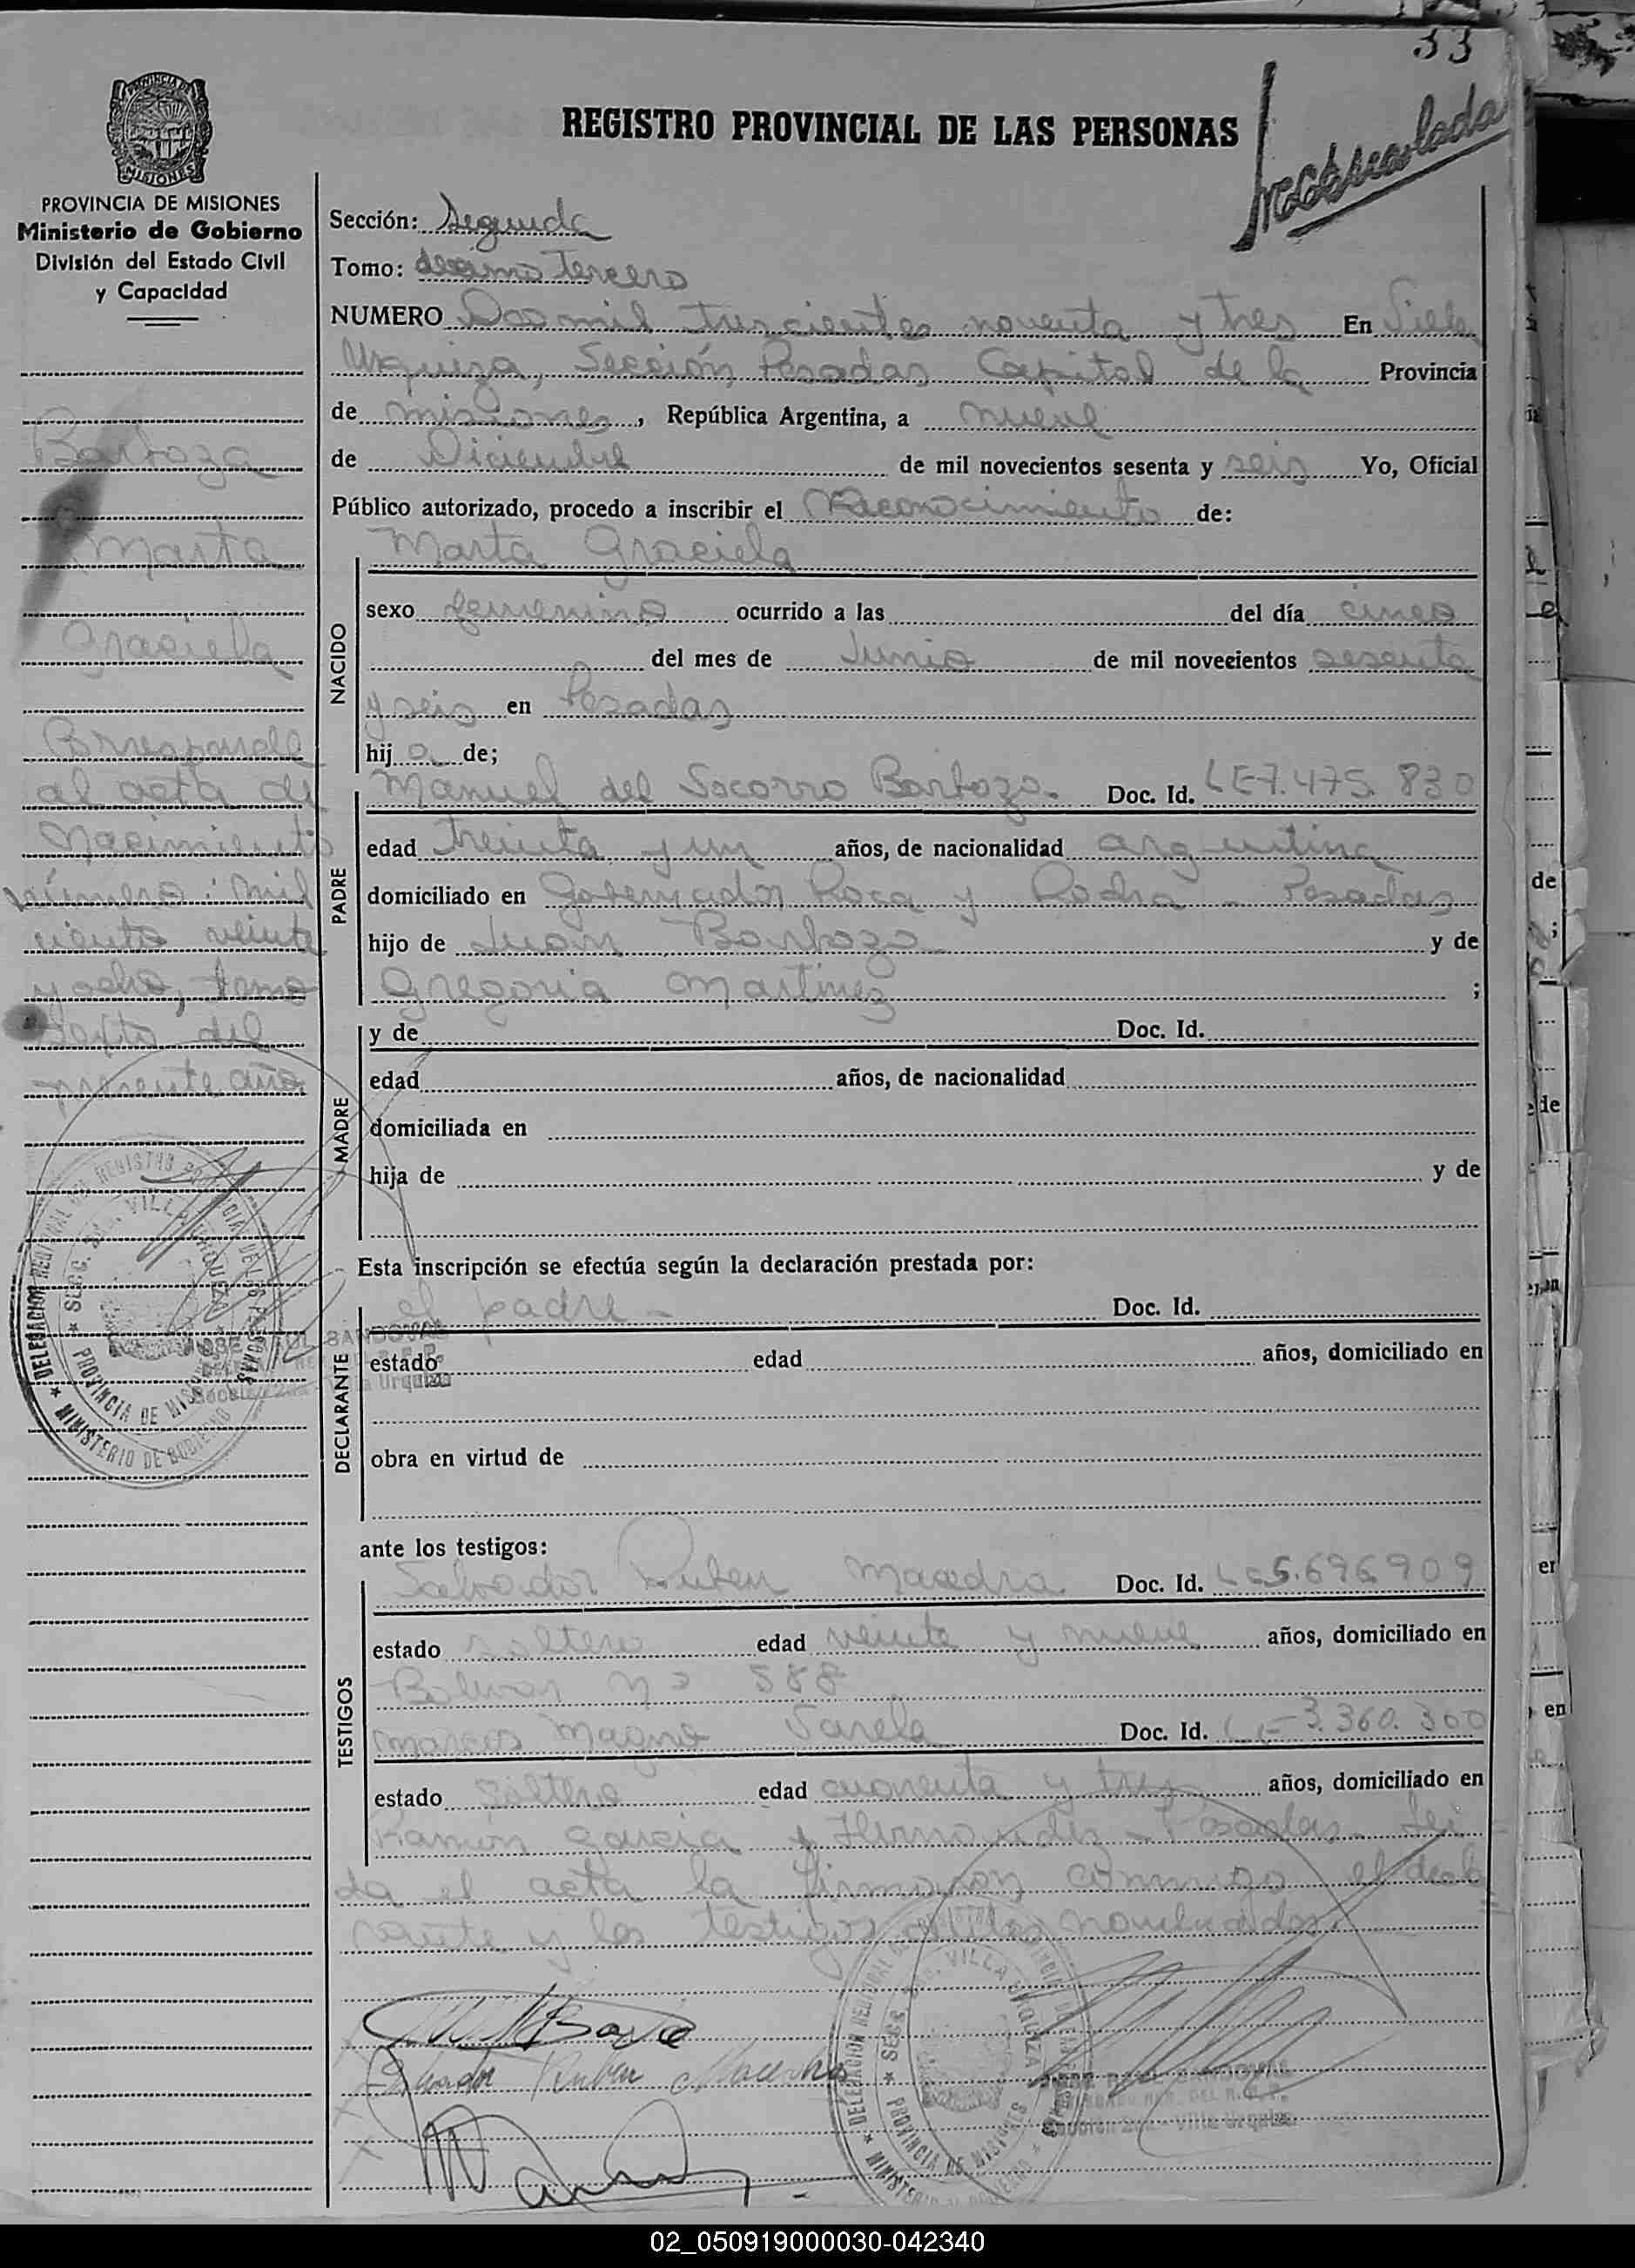 33
REGISTRO PROVINCIAL DE LAS PERSONAS
PROVINCIA DE MISIONES
Ministerio de Gobierno
División del Estado Civil
y Capacidad
Barboza
Marta
Graciela
Corresponde
al acta de
Nacimiento
número: mil
ciento veinte
y ocho, tomo
sexto del
presente año
Sección: Segunda
Tomo: decimo tercero
NUMERO Dos mil trescientos noventa y tres En Villa
Urquiza, Sección Posadas Capital de la Provincia
de Misiones, República Argentina, a nueve
de Diciembre de mil novecientos sesenta y seis Yo, Oficial
Público autorizado, procedo a inscribir el Reconocimiento de:
Marta Graciela
NACIDO
sexo femenino ocurrido a las del día cinco
del mes de Junio de mil novecientos sesenta
y seis en Posadas
hija de;
PADRE
Manuel del Socorro Barboza Doc. Id. LE 7.475.830
edad treinta y un años, de nacionalidad argentina
domiciliado en Gobernador Roca y - Posadas
hijo de Juan Barboza y de
Gregoria Martinez ;
MADRE
y de Doc. Id.
edad años, de nacionalidad
domiciliada en
hija de y de
Esta inscripción se efectúa según la declaración prestada por:
DECLARANTE
el padre - Doc. Id.
estado edad años, domiciliado en
obra en virtud de
ante los testigos:
TESTIGOS
Salvador Ruben Doc. Id. 5.696909
estado soltero edad veinte y nueve años, domiciliado en
Bolivar Nº 588
Marcos Magno Varela Doc. Id. LE 3.360.300
estado soltero edad cuarenta y tres años, domiciliado en
Ramón García y Hernandez - Posadas - Lei
da el acta la firmaron conmigo el decla
rante y los testigos nombrados.
Salvador Ruben
DELEGACION REGIONAL DEL REGISTRO PROVINCIAL DE LAS PERSONAS
SECC. 2da. VILLA URQUIZA
PROVINCIA DE MISIONES
MINISTERIO DE GOBIERNO
02_050919000030-042340